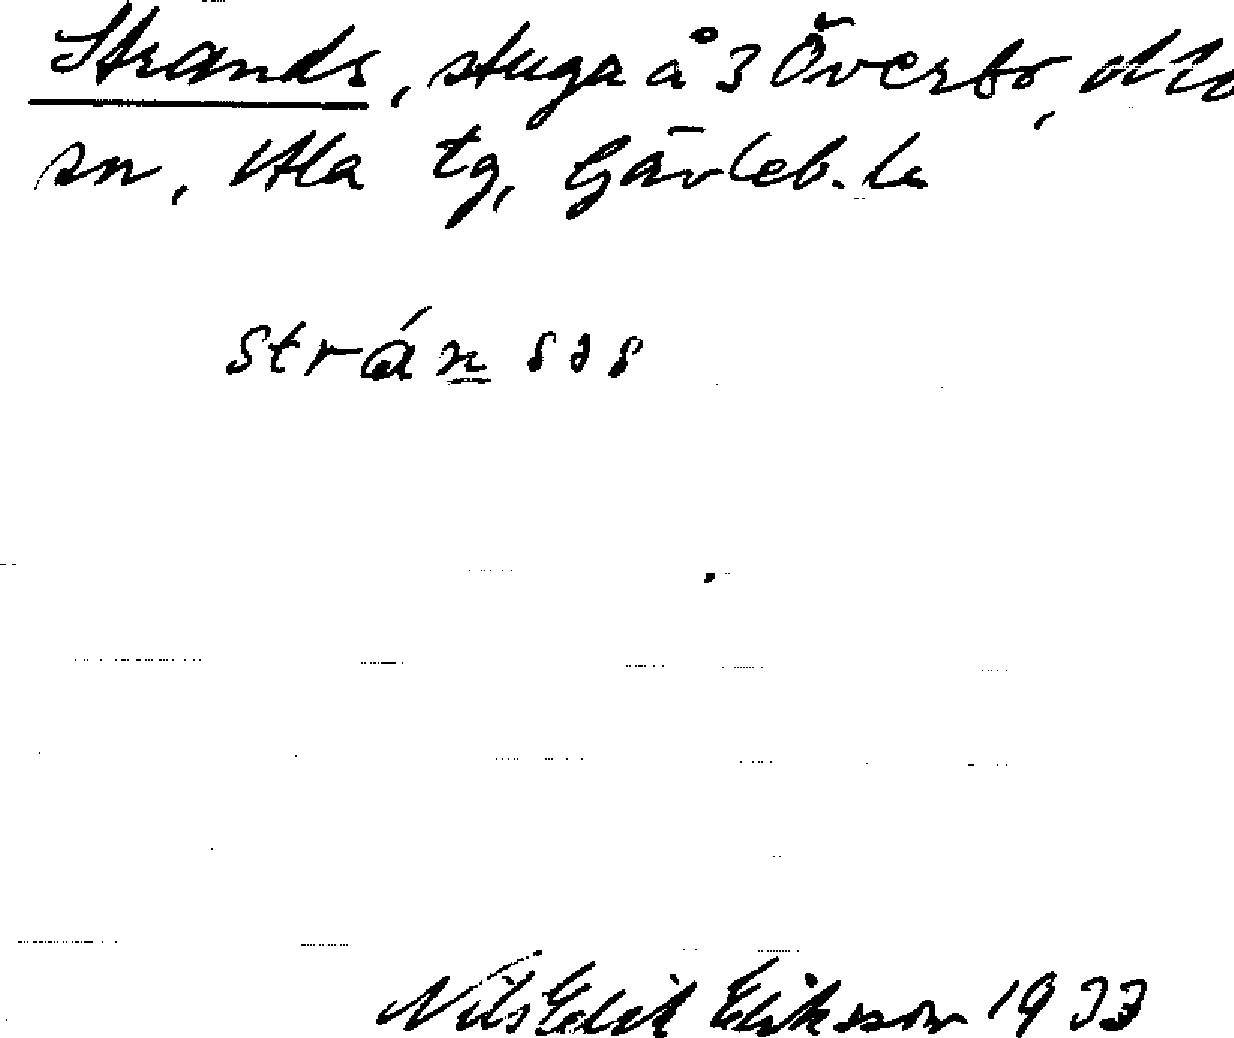 Strands, stuga å 3 Överbo, Alfta
sn, Ala tg, Gävleb. l.
stránsəs
Nils Edvik Eriksson 1933